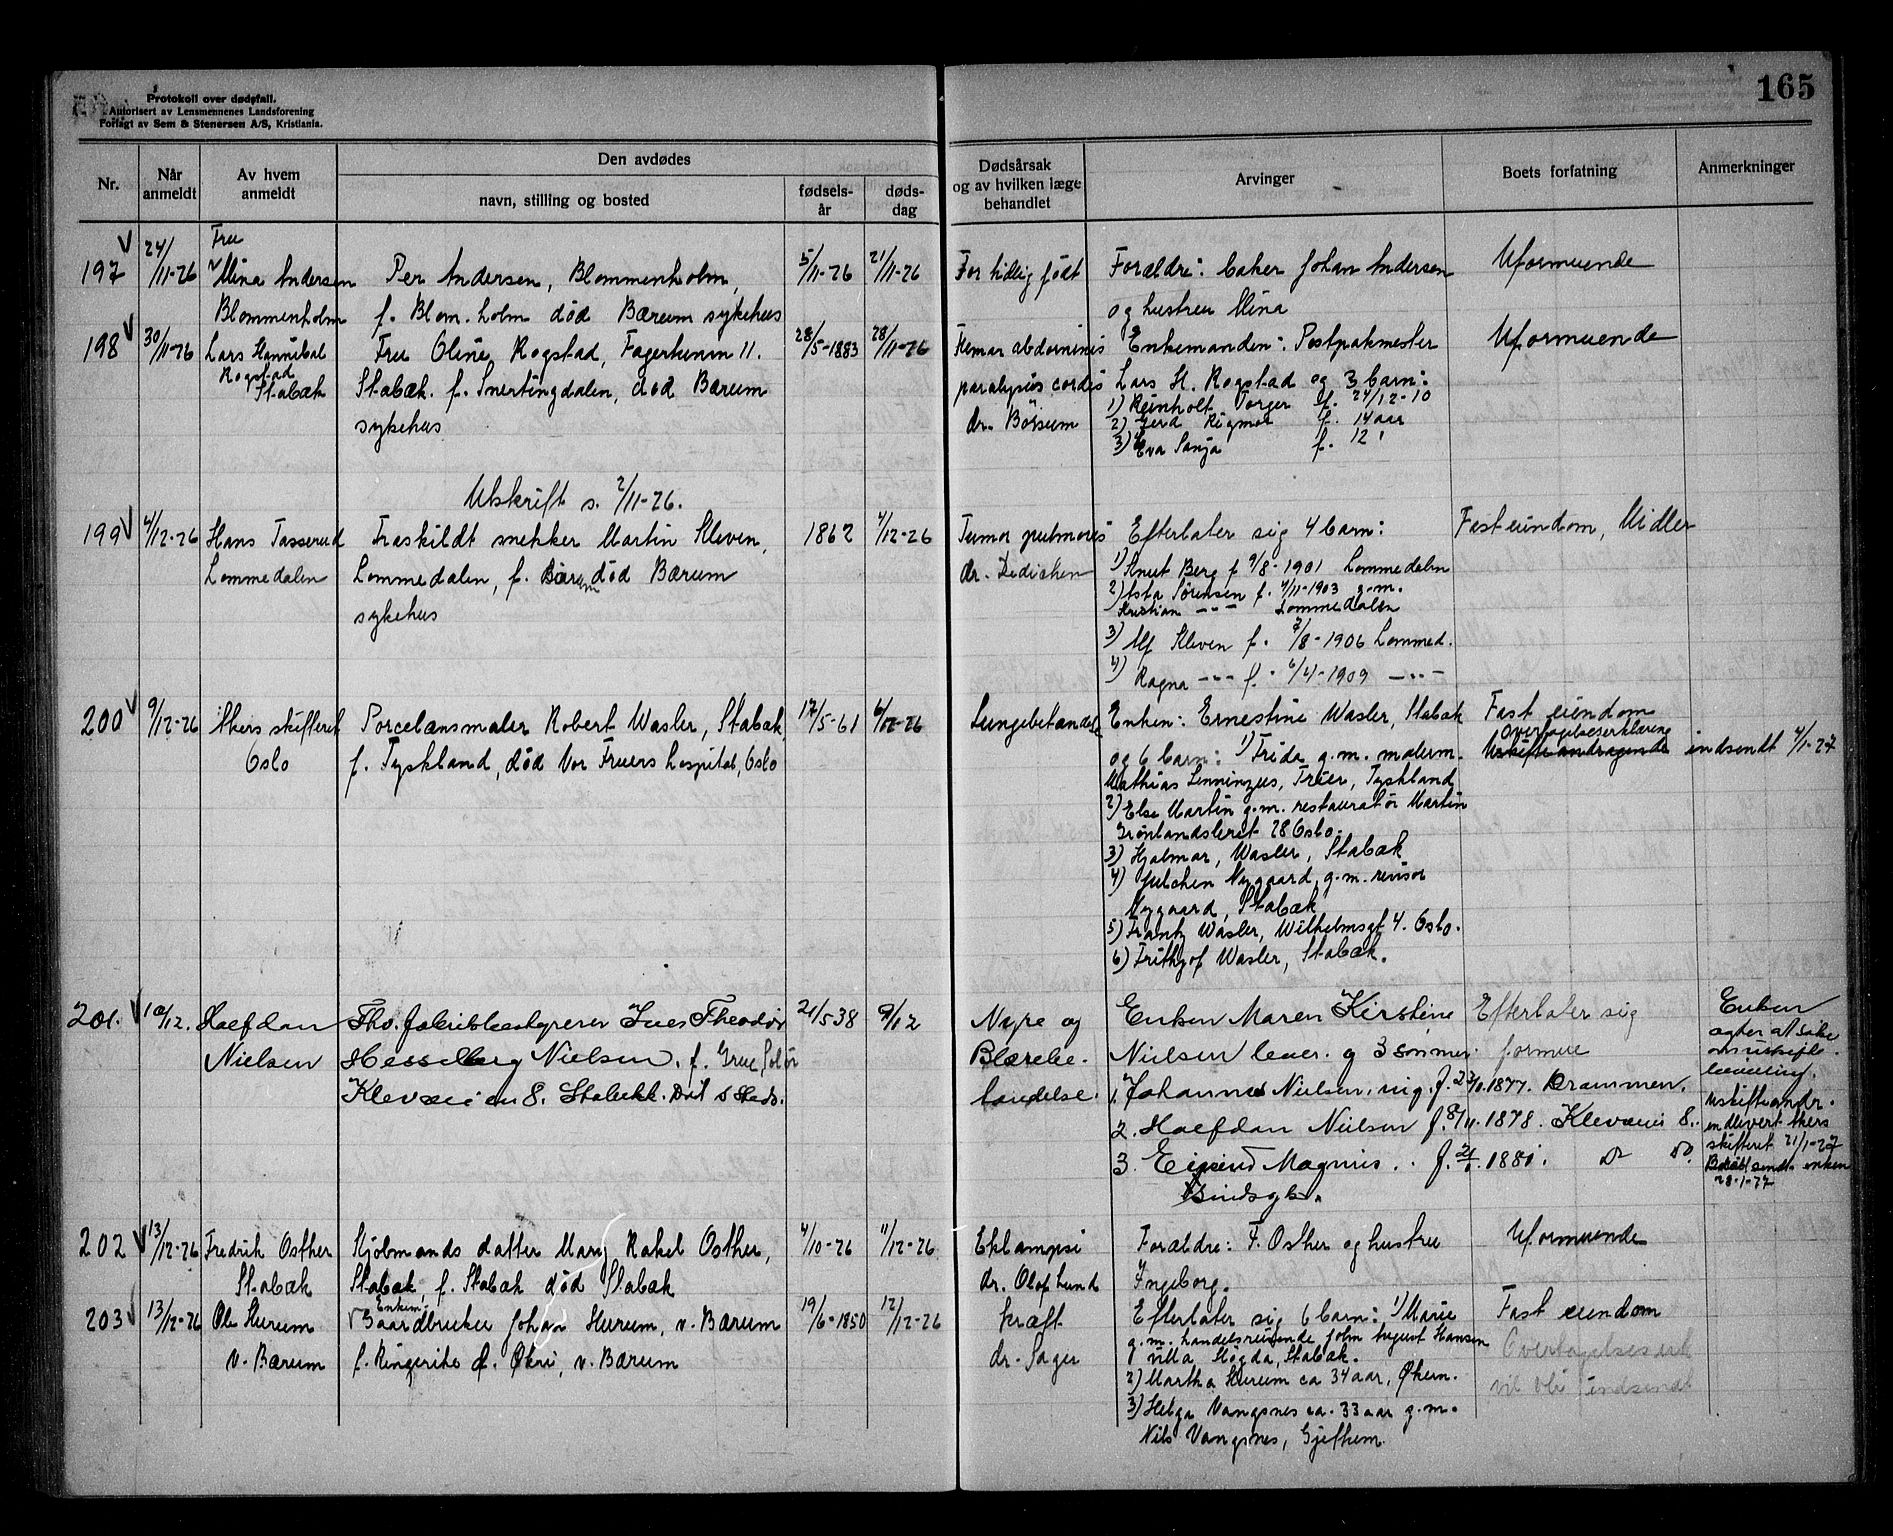 Protokoll over dødsfall.
Autorisert av Lensmennenes Landsforening
Forlagt av Sem & Stenersen A/S, Kristiania.
165
Nr.
Når anmeldt
Av hvem anmeldt
Den avdødes
navn, stilling og bosted
fødsels-år
døds-dag
Dødsårsak og av hvilken læge behandlet
Arvinger
Boets forfatning
Anmerkninger
197 24/11-26 Fru Mina Andersen Blommenholm
Per Andersen, Blommenholm,
f. Blom.holm død Bærum sykehus
5/11-26 21/11-26
For tidlig født
Forældre: baker Johan Andersen
og hustru Mina
Uformuende
198 30/11-26 Lars Hannibal Rogstad Stabæk
Fru Oline Rogstad, Fagerheim 11.
Stabæk. f. Snertingdalen, død Bærum
sykehus
28/5-1883 28/11-26
abdominis
paralysis cordis
dr. Börsum
Enkemanden: Postpakmester
Lars H. Rogstad og 3 barn:
1) Reinholt Torger f. 24/12-10
2) Gerd Rigmor f. 14 aar
3) Eva Sonja f. 12 '
Uformuende
Utskrift s. 2/11-26.
199 4/12-26 Hans Tasserud Lommedalen
Fraskildt snekker Martin Kleven,
Lommedalen, f. Bærum død Bærum
sykehus
1862 4/12-26
Tumor pulmonis
dr. Dedichen
Efterlater sig 4 barn:
1) Knut Berg f 9/8-1901 Lommedalen
2) Asta Sørensen f. 4/11-1903 g.m.
Kristian -"- Lommedalen
3) Alf Kleven f. 7/8-1906 Lommed.
4) Ragna -"- f. 6/4-1909 -"-
Fast eiendom, Midler
200 9/12-26 Akers skifteret Oslo
Porcelænsmaler Robert Wasler, Stabæk
f. Tyskland, død Vor Frues hospital, Oslo
17/5-61 6/12-26
Lungebetændelse
Enken: Ernestine Wasler, Stabæk
og 6 barn: 1) Frida g.m. malerm.
Mathias Lenninzus, Trier, Tyskland
2) Else Martin g.m. restauratør Martin
Grønlandsleret 28 Oslo.
3) Hjalmar, Wasler, Stabæk
4) Julchen Nygaard g.m. revisor
Nygaard, Stabæk
5) Frantz Wasler, Wilhelmsgt 4. Oslo.
6) Frithjof Wasler, Stabæk.
Fast eiendom
Overtagelseserklæring
Uskifteandragende indsendt 4/1-27
201. 10/12. Halfdan Nielsen
Fhv. fabrikbestyrer Jues Theodor
Hesselberg Nielsen. f. Grue Solør
Kleveien 8. Stabekk. Død s steds.
21/5 38 9/12
Nyre og
Blærebe-
tændelse.
Enken Maren Kirstine
Nielsen lever. og 3 sønner.
1. Johannes Nielsen, ing. f. 1877. Drammen.
2. Halfdan Nielsen f. 8/11. 1878. Kleveien 8.
3. Magnus. f. 1881. do do.
Sindsyk.
Efterlater sig
formue
Enken
agter at søke
om uskifte-
bevilling.
Uskifteandr.
indlevert Akers
skifteret 21/1-27
sendt enken
28-1-27
202 13/12-26 Fredrik Osther Stabæk
Kjøbmands datter Mary Rakel Osther,
Stabæk, f. Stabæk død Stabæk
4/10-26 11/12-26
Eklampsi
dr. Olof Lund
Forældre: F. Osther og hustru
Ingeborg.
Uformuende
203 13/12-26 Ole Hurum v. Bærum
Enkem.
Gaardbruker Johan Hurum, v. Bærum
f. Ringerike d. Økri, v. Bærum
19/6-1850 12/12-26
kræft
dr. Sager
Efterlater sig 6 barn: 1) Marie
g.m. handelsreisende John August Hansen
villa Högda, Stabæk.
2) Martha Hurum ca 34 aar, Økern.
3) Helga Vangsnes ca. 33 aar g.m.
Nils Vangsnes, Gjethem.
Fast eiendom
Overtagelseserk
vil bli indsendt